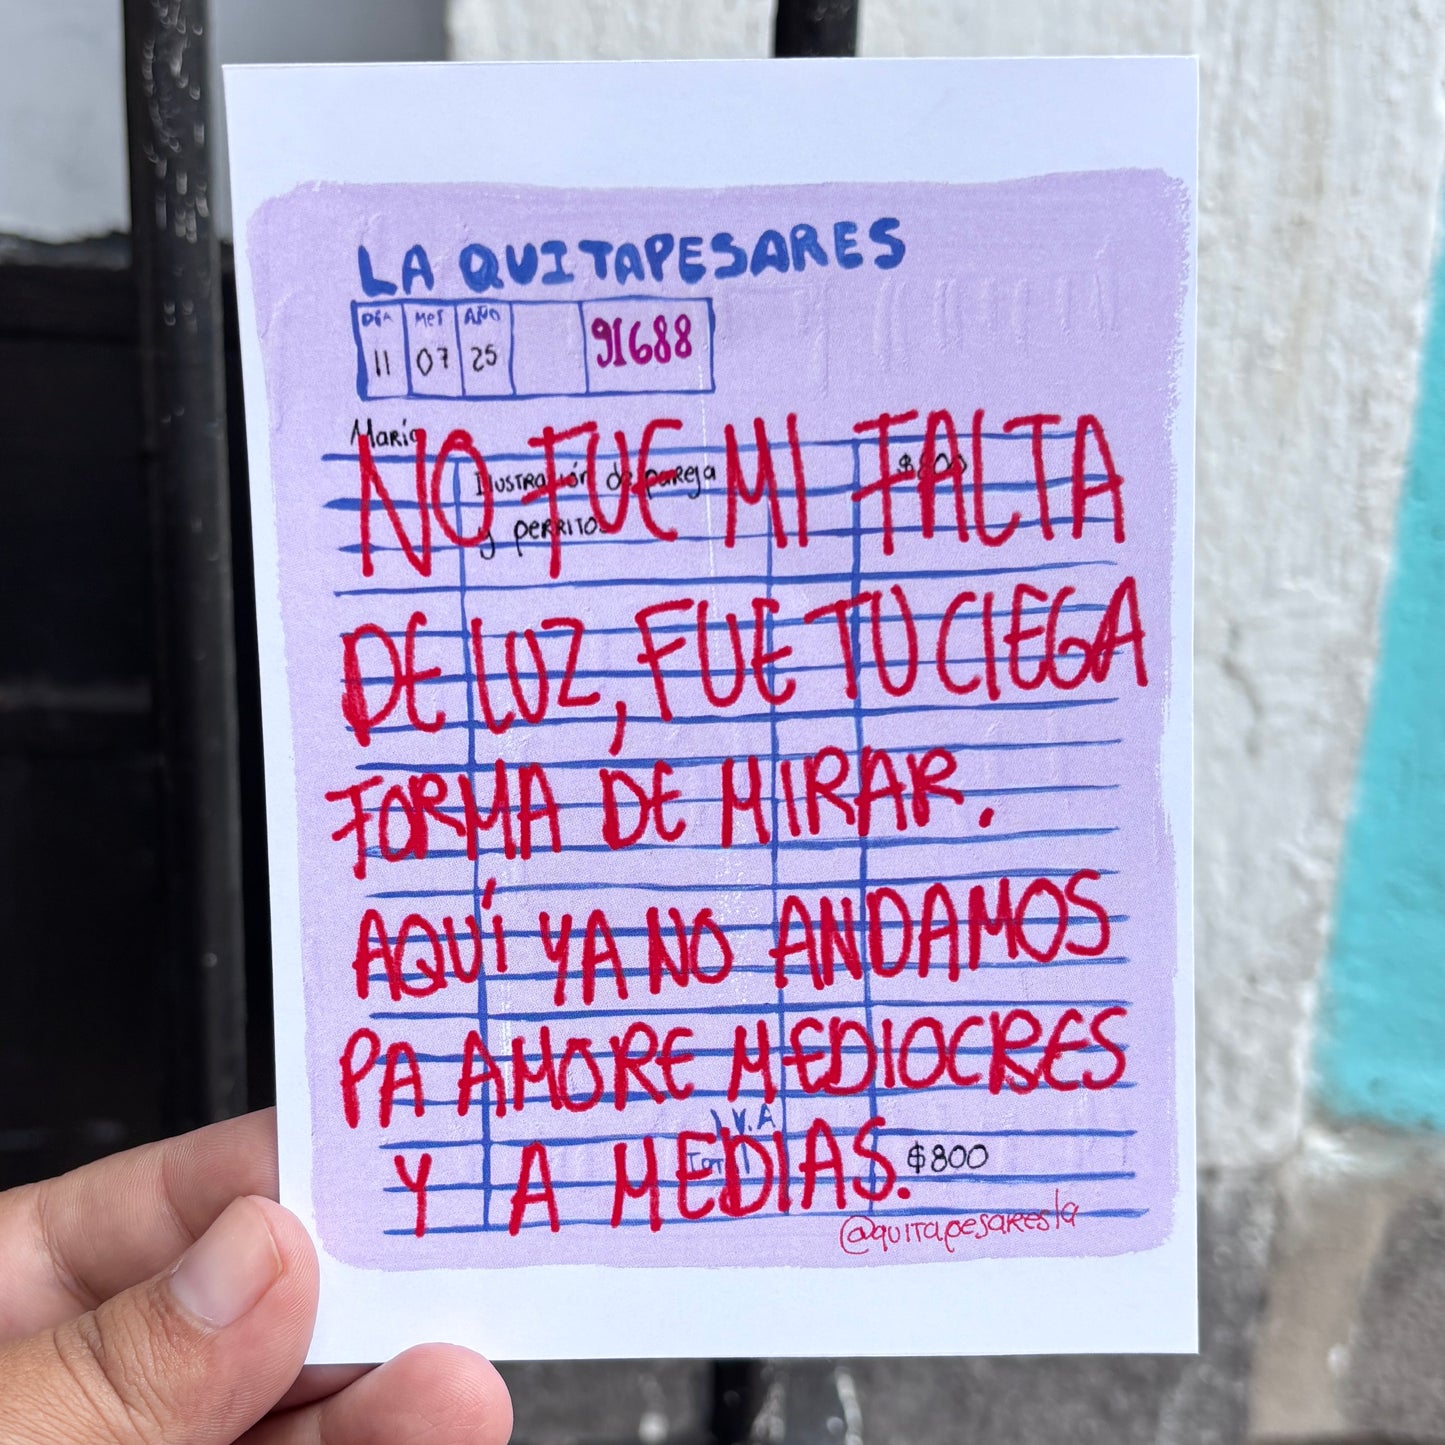 LA QUITAPESARES
DÍA MES AÑO
11 07 25 91688
María
Ilustración de pareja $800
y perrito
NO FUE MI FALTA
DE LUZ, FUE TU CIEGA
FORMA DE MIRAR.
AQUÍ YA NO ANDAMOS
PA AMORE MEDIOCRES
Y A MEDIAS.
I.V.A
Total $800
@quitapesaresla